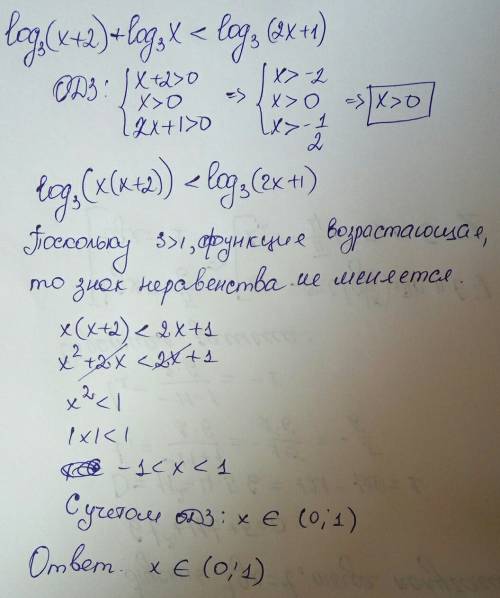 log₃(x+2)+log₃x < log₃(2x+1)
ОДЗ: { x+2>0 => { x>-2
x>0 x>0 => x>0
2x+1>0 x>-1/2
log₃(x(x+2)) < log₃(2x+1)
Поскольку 3>1, функция возрастающая,
то знак неравенства не меняется.
x(x+2) < 2x+1
x²+2x < 2x+1
x² < 1
|x|<1
-1<x<1
С учетом ОДЗ: x ∈ (0;1)
Ответ. x ∈ (0;1)